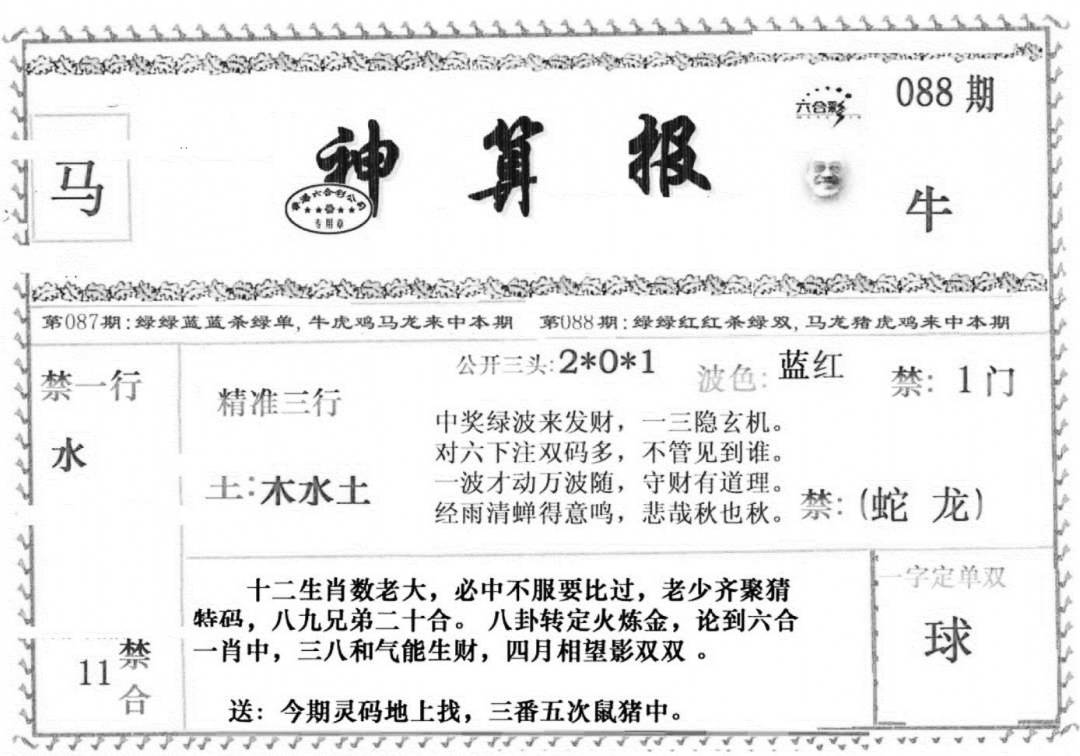 088期
六合彩
马
神算报
香港六合彩公司
专用章
牛
第087期:绿绿蓝蓝杀绿单,牛虎鸡马龙来中本期 第088期:绿绿红红杀绿双,马龙猪虎鸡来中本期
禁一行
水
精准三行
土:木水土
公开三头:2*0*1
波色:蓝红
禁: 1门
中奖绿波来发财，一三隐玄机。
对六下注双码多，不管见到谁。
一波才动万波随，守财有道理。
经雨清蝉得意鸣，悲哉秋也秋。
禁:(蛇 龙)
十二生肖数老大，必中不服要比过，老少齐聚猜
特码，八九兄弟二十合。 八卦转定火炼金，论到六合
一肖中，三八和气能生财，四月相望影双双 。
送：今期灵码地上找，三番五次鼠猪中。
11禁合
一字定单双
球